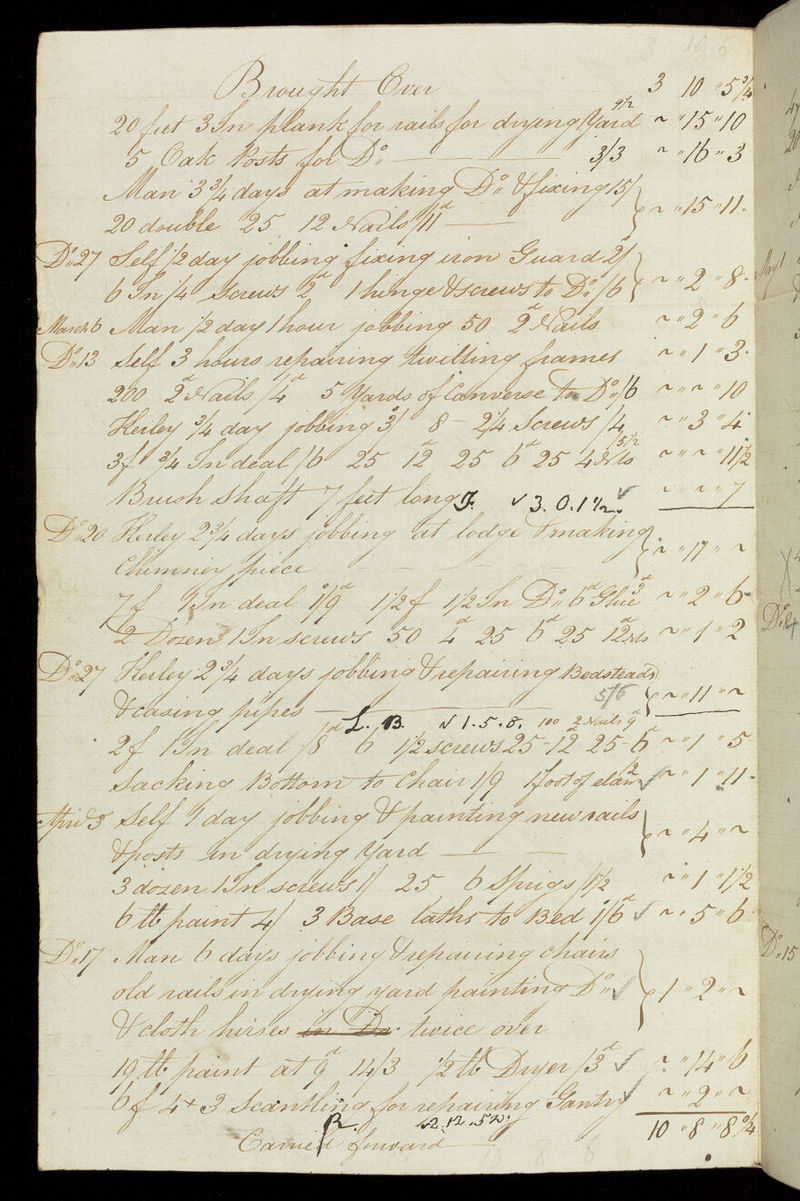 Brought Over 3 10 " 5 3/4
20 feet 3 In plank for rails for drying Yard 9 1/2 ~ " 15 " 10
5 Oak Posts for Do 3/3 ~ " 16 " 3
Man 3 3/4 days at making Do & fixing 15/
20 double 25 12 Nails /11d ~ " 15 " 11
Do 27 Self 1/2 day jobbing fixing iron Guard 2/
6 In /4 screws 2d 1 hinge & screws to Do /6 ~ " 2 " 8
March 6 Man 1/2 day 1 hour jobbing 50 2d Nails ~ " 2 " 6
Do 13 Self 3 hours repairing twilting frames ~ " 1 " 3
200 2d Nails /4d 5 Yards of Canverse to Do /6 ~ " ~ " 10
Kerley 3/4 day jobbing 3/ 8 - 2 1/4 Screws /4 ~ " 3 " 4
3 f 3/4 In deal /6 25 12d 25 6d 25 4 Nls 5 1/2 ~ " ~ " 11 1/2
Brush Shaft 7 feet long F. ✓ 3. 0. 1 1/2 ✓ ~ " ~ " 7
Do 20 Kerley 2 3/4 days jobbing at lodge & making
Chimney piece ~ " 17 " ~
7 f 1 In deal 1/9d 1 1/2 f 1 1/2 In Do 6d Glue 3d ~ " 2 " 6
2 Dozen 1 In screws 50 4d 25 6d 25 12d Nls ~ " 1 " 2
Do 27 Kerley 2 3/4 days jobbing & repairing Bedsteads
& casing pipes 5/6 ~ " 11 " ~
L. B. ✓ 1. 5. 8. 100 2 Nails 9d
2 f 1 In deal /8d 6 1 1/2 screws 25 - 12d 25 - 6d ~ " 1 " 5
Sacking Bottom to Chair 1/9 1 foot of elm 2d ✓ ~ " 1 " 11
April 3 Self 1 day jobbing & painting new rails
& posts in drying Yard ~ " 4 " ~
3 dozen 1 In screws 1/ 25 6 Sprigs /1 1/2 ~ " 1 " 1 1/2
6 lb paint 4/ 3 Base laths to Bed 1/6d ✓ ~ " 5 " 6
Do 17 Man 6 days jobbing & repairing chairs
old rails in drying yard painting Do ✓
& cloth hirses in Do twice over 1 " 2 " ~
19 lb paint at 9d 14/3 1/2 lb Dryer /3d ✓ ~ " 14 " 6
6 f 4 + 3 Scantling for repairing Gantry ✓ ~ " 2 " ~
R. £2. 12. 5 1/2. 10 " 8 " 8 3/4
Carried forward
May 1
Do 4
Do 15